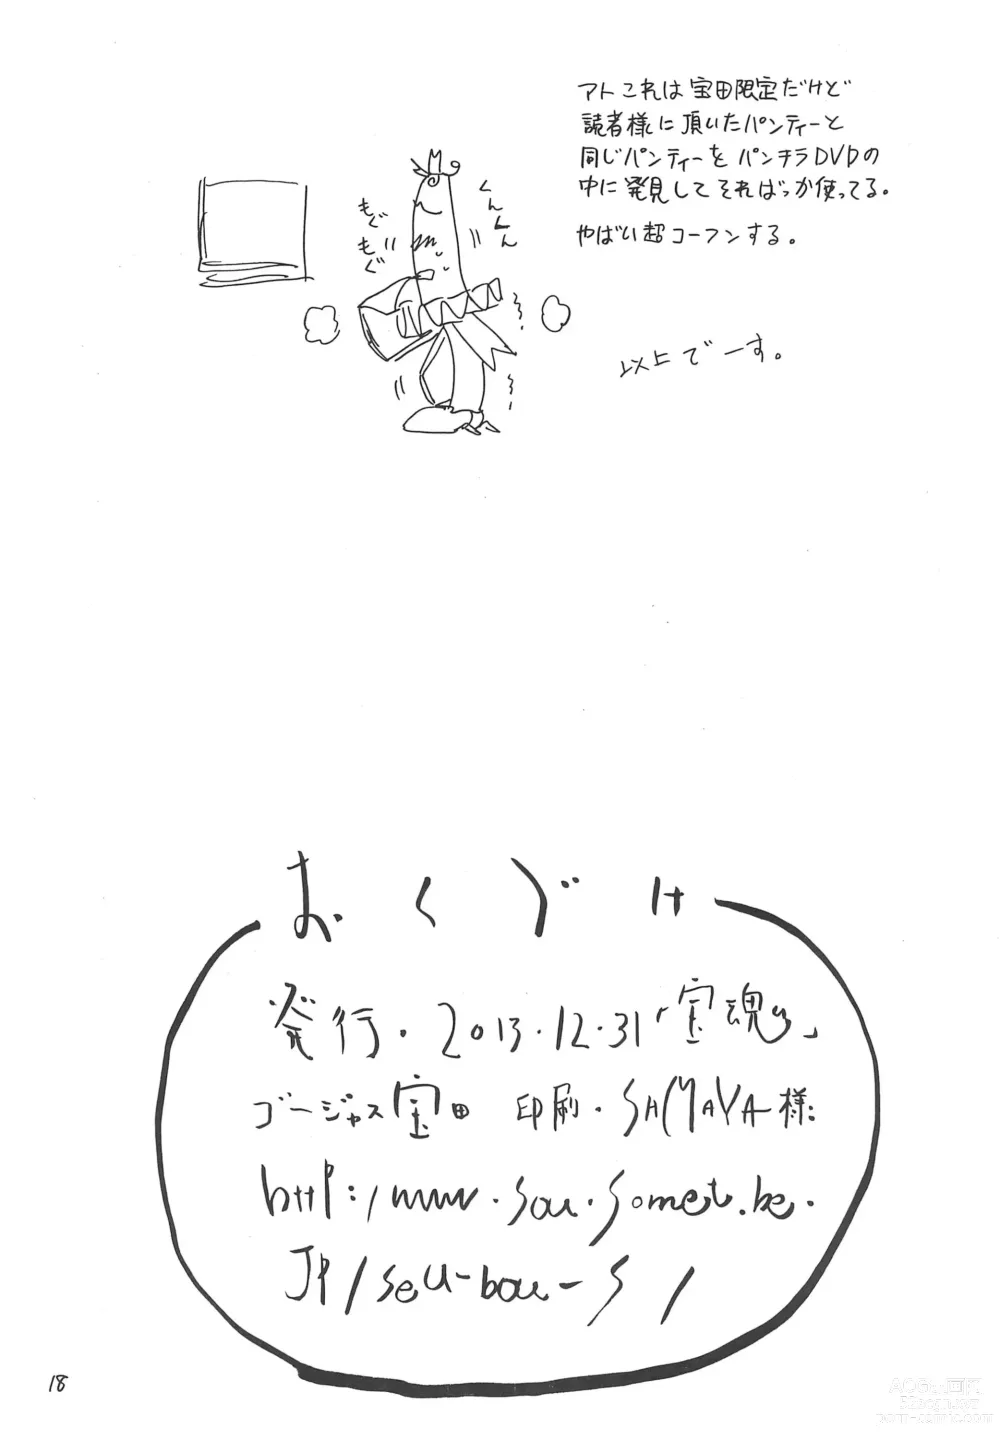 アト これは 宝田限定だけど
読者様に 頂いたパンティーと
同じパンティーを パンチラDVDの
中に 発見して そればっか使ってる。
やばい 超コーフンする。
くんくん
もぐもぐ
以上でーす。
おくづけ
発行・2013・12・31「宝魂」
ゴージャス宝田 印刷・SAMAYA様
http:/www.sou.somet.be.
JP/seu-bou-s/
18